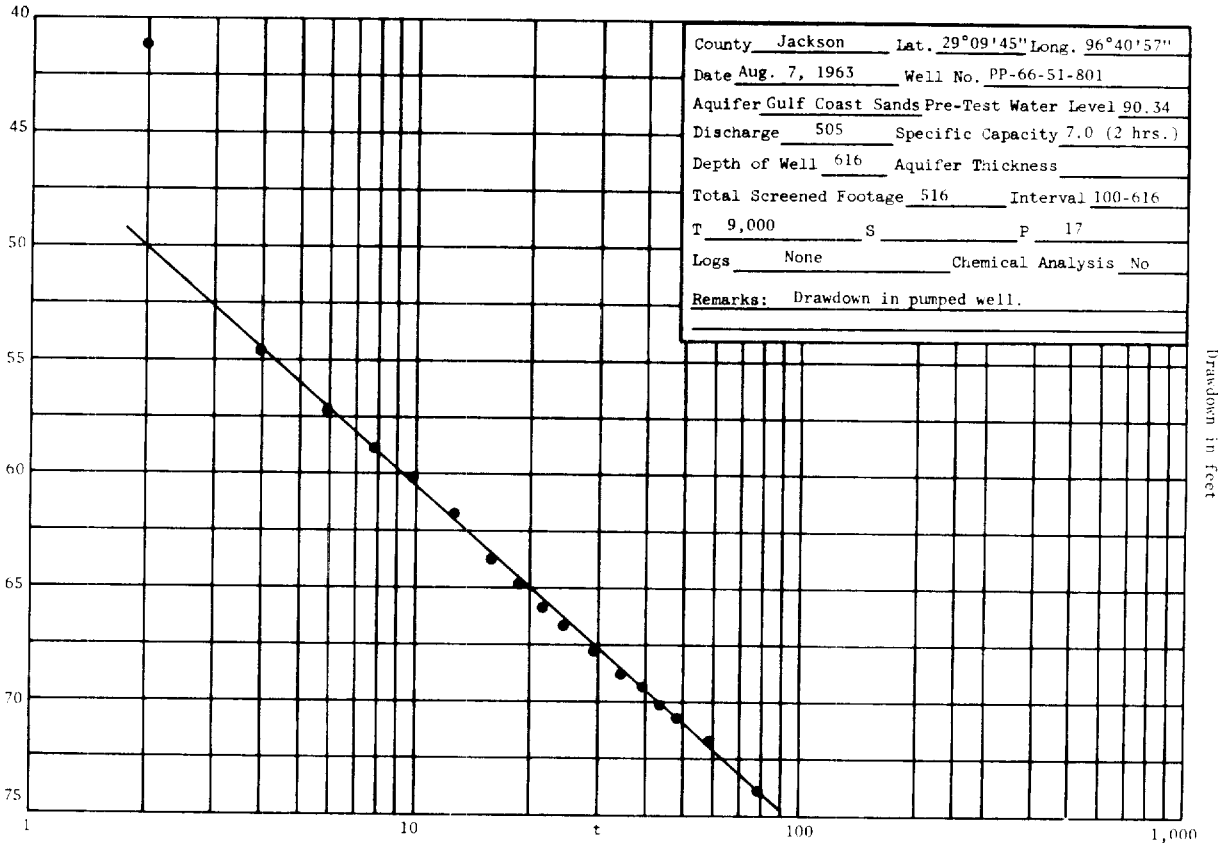 County Jackson Lat. 29°09'45" Long. 96°40'57"
Date Aug. 7, 1963 Well No. PP-66-51-801
Aquifer Gulf Coast Sands Pre-Test Water Level 90.34
Discharge 505 Specific Capacity 7.0 (2 hrs.)
Depth of Well 616 Aquifer Thickness
Total Screened Footage 516 Interval 100-616
T 9,000 S P 17
Logs None Chemical Analysis No
Remarks: Drawdown in pumped well.
40
45
50
55
60
65
70
75
Drawdown in feet
1 10 t 100 1,000